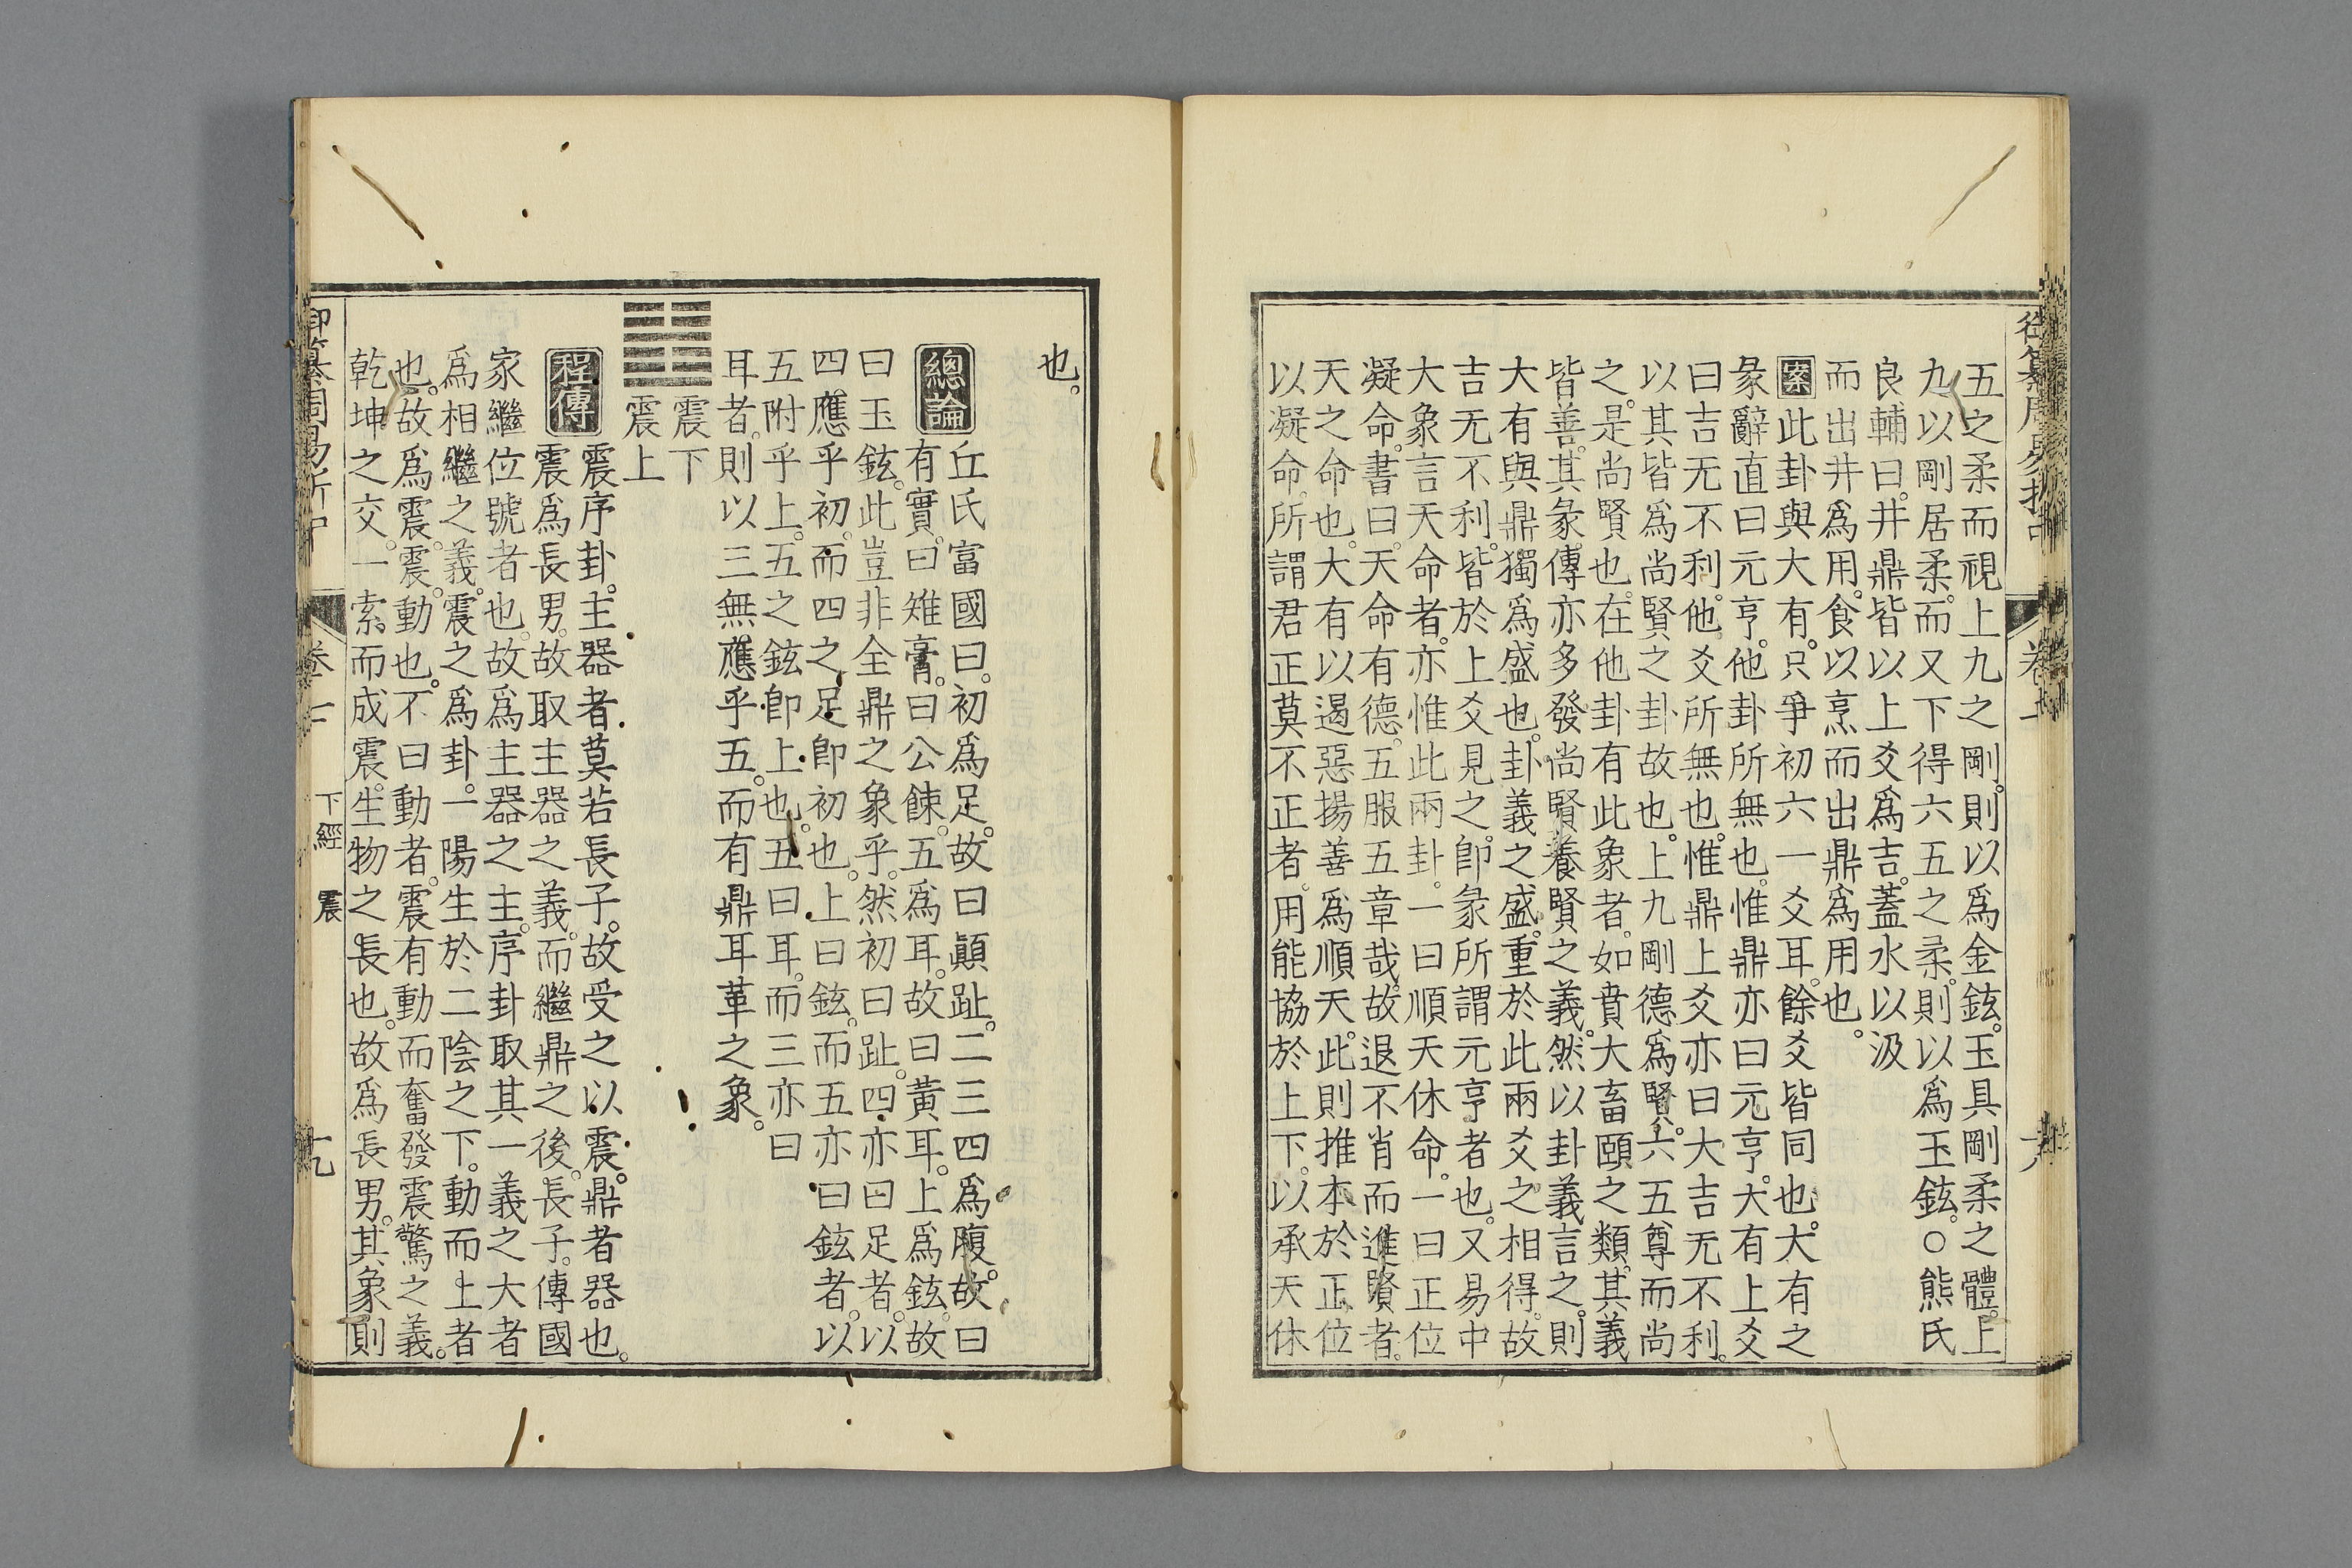 五之柔而視上九之剛。則以爲金鉉。玉具剛柔之體。上
九以剛居柔。而又下得六五之柔。則以爲玉鉉。○熊氏
良輔曰。井鼎皆以上爻爲吉。蓋水以汲
而出井爲用。食以烹而出鼎爲用也。
案 此卦與大有。只爭初六一爻耳。餘爻皆同也。大有之
彖辭直曰元亨。他卦所無也。惟鼎亦曰元亨。大有上爻
曰吉无不利。他爻所無也。惟鼎上爻亦曰大吉无不利。
以其皆爲尚賢之卦故也。上九剛德爲賢。六五尊而尚
之。是尚賢也。在他卦有此象者。如賁大畜頤之類。其義
皆善。其彖傳亦多發尚賢養賢之義。然以卦義言之。則
大有與鼎獨爲盛也。卦義之盛。重於此兩爻之相得。故
吉无不利。皆於上爻見之。卽彖所謂元亨者也。又易中
大象言天命者。亦惟此兩卦。一曰順天休命。一曰正位
凝命。書曰。天命有德。五服五章哉。故退不肖而進賢者。
天之命也。大有以遏惡揚善爲順天。此則推本於正位
以凝命。所謂君正莫不正者。用能協於上下。以承天休
也。
總論 丘氏富國曰。初爲足。故曰顚趾。二三四爲腹。故曰
有實。曰雉膏。曰公餗。五爲耳。故曰黃耳。上爲鉉。故
曰玉鉉。此豈非全鼎之象乎。然初曰趾。四亦曰足者。以
四應乎初。而四之足卽初也。上曰鉉。而五亦曰鉉者。以
五附乎上。五之鉉卽上也。五曰耳。而三亦曰
耳者。則以三無應乎五。而有鼎耳革之象。
震下
震上
程傳 震序卦。主器者莫若長子。故受之以震。鼎者器也。
震爲長男。故取主器之義。而繼鼎之後。長子。傳國
家繼位號者也。故爲主器之主。序卦取其一義之大者
爲相繼之義。震之爲卦。一陽生於二陰之下。動而上者
也。故爲震。震。動也。不曰動者。震有動而奮發震驚之義。
乾坤之交。一索而成震。生物之長也。故爲長男。其象則
下經 震